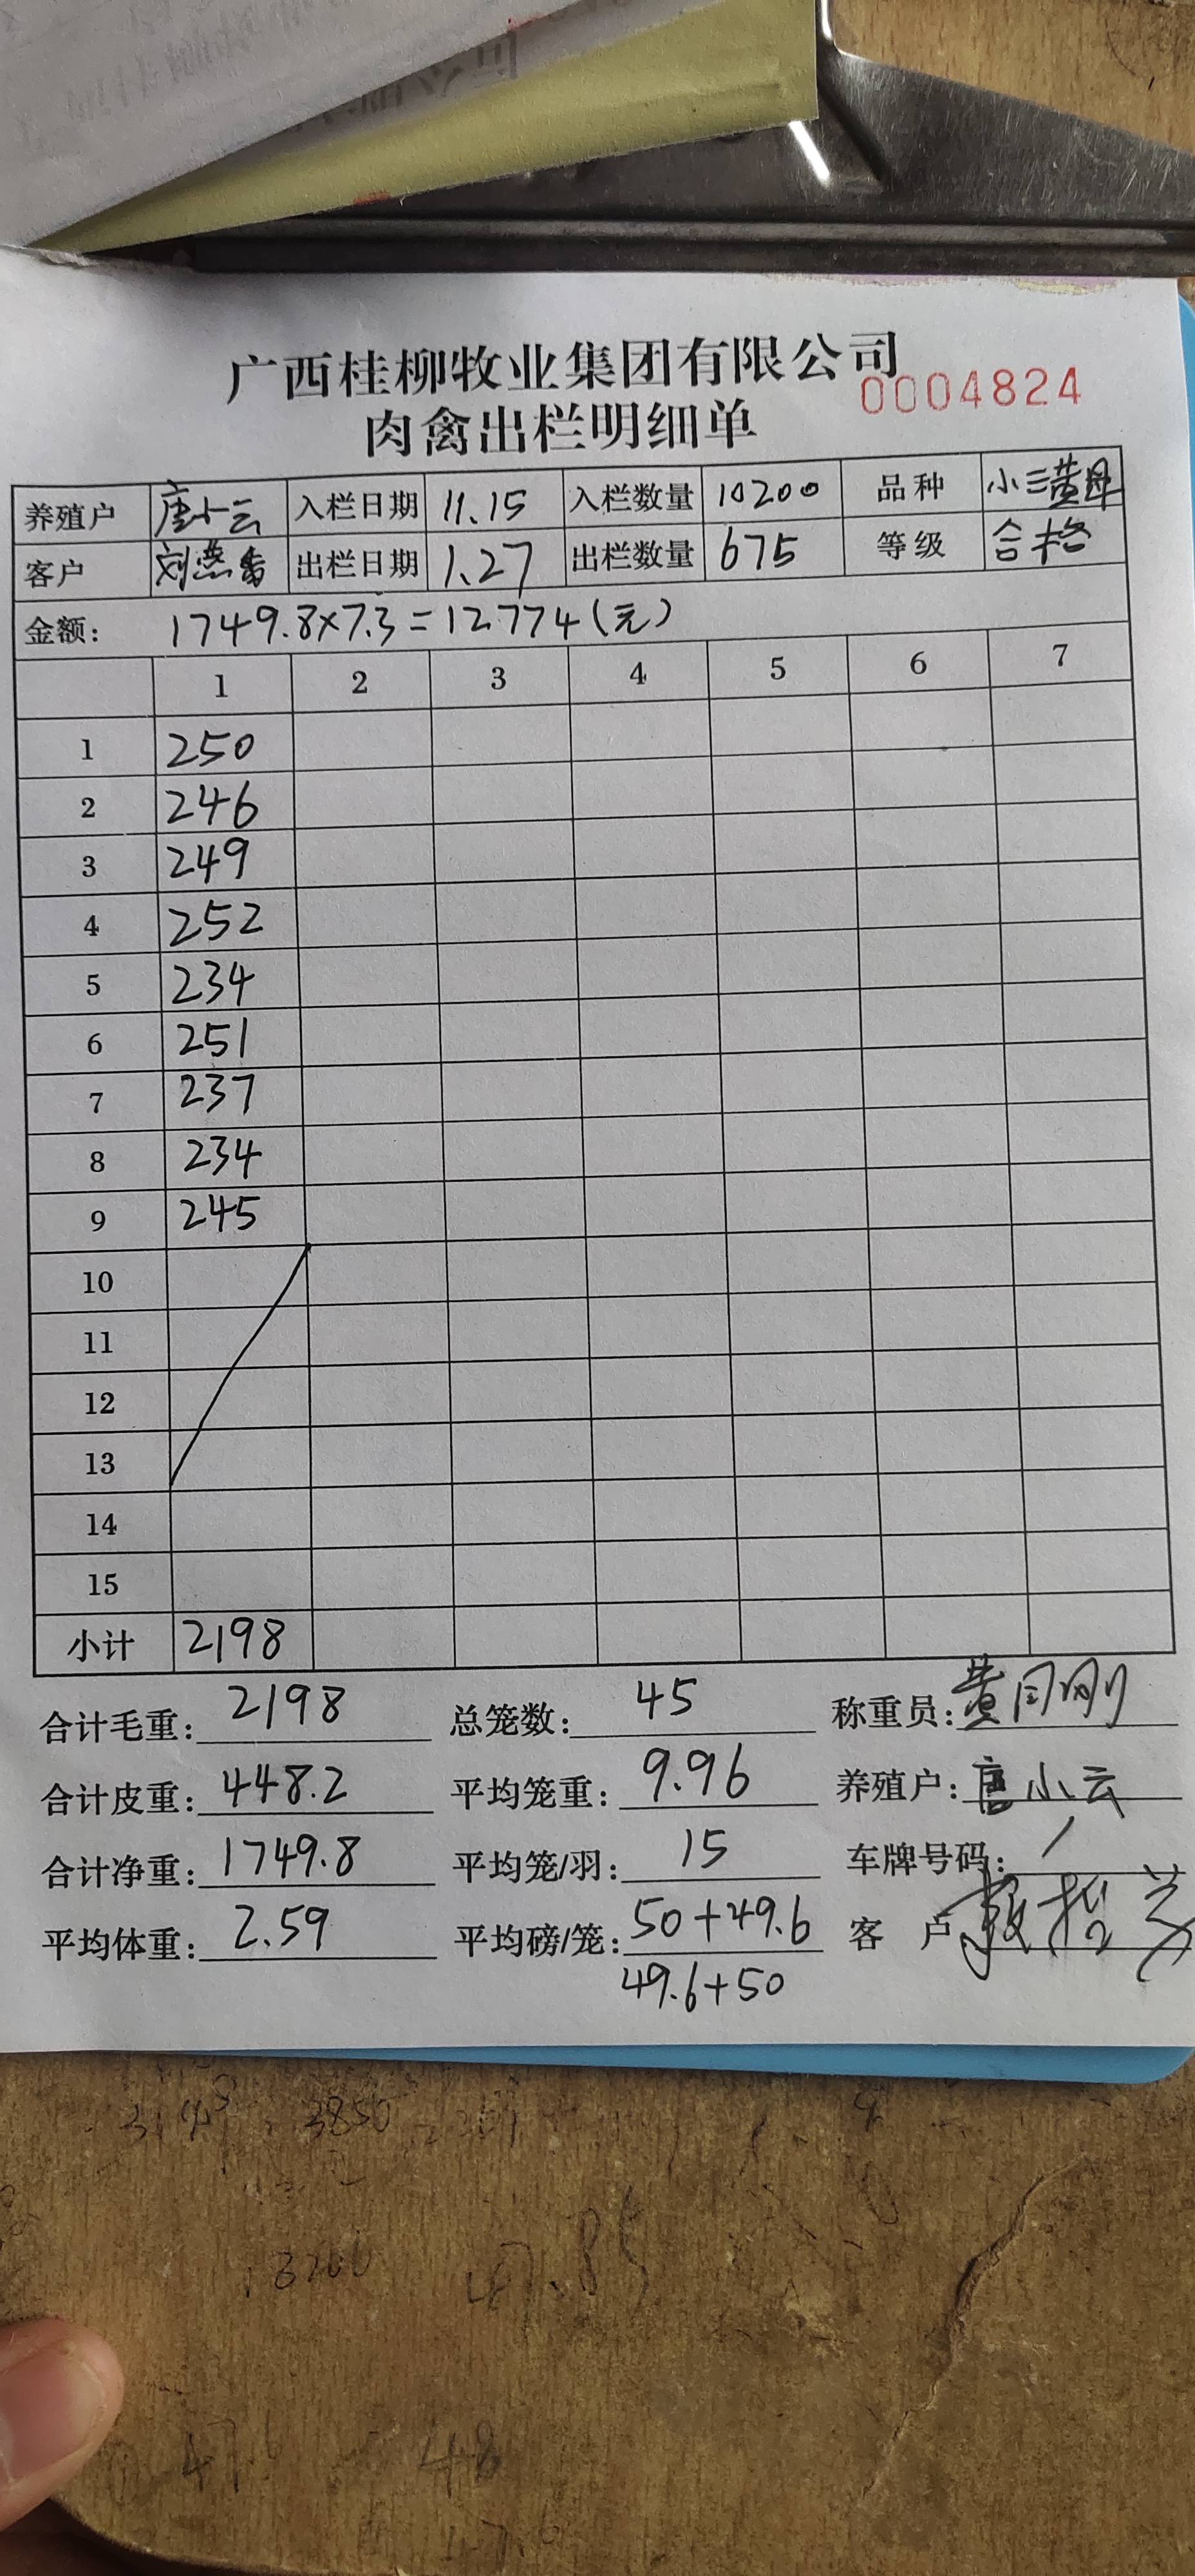 广西桂柳牧业集团有限公司
0004824
肉禽出栏明细单
养殖户 唐小云 入栏日期 11.15 入栏数量 10200 品种 小三黄
客户 刘燕香 出栏日期 1.27 出栏数量 675 等级 合格
金额: 1749.8×7.3=12774(元)
1 2 3 4 5 6 7
1 250
2 246
3 249
4 252
5 234
6 251
7 237
8 234
9 245
10
11
12
13
14
15
小计 2198
合计毛重: 2198 总笼数: 45 称重员: 黄
合计皮重: 448.2 平均笼重: 9.96 养殖户: 唐小云
合计净重: 1749.8 平均笼/羽: 15 车牌号码: /
平均体重: 2.59 平均磅/笼: 50+49.6 客 户
49.6+50